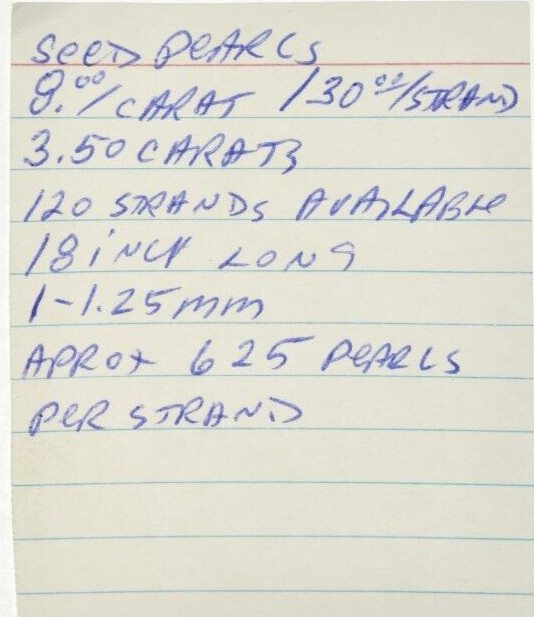 SEED PEARLS
8.00/CARAT /30.00/STRAND
3.50 CARATS
120 STRANDS AVAILABLE
18 INCH LONG
1-1.25mm
APROX 625 PEARLS
PER STRAND